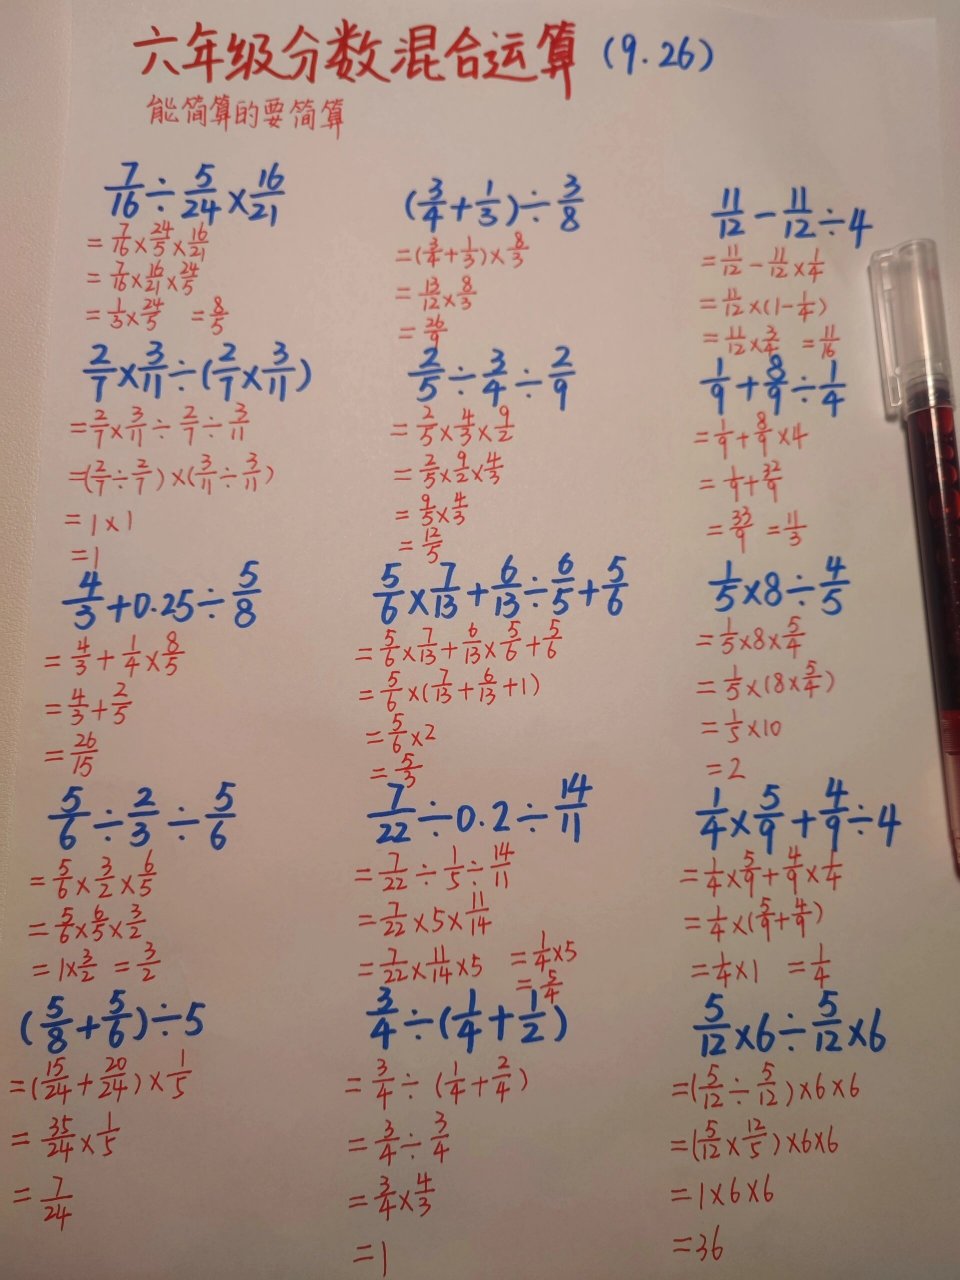 六年级分数混合运算 (9.26)
能简算的要简算
7/16÷5/24×16/21
=7/16×24/5×16/21
=7/16×16/21×24/5
=1/3×24/5 =8/5
(3/4+1/3)÷3/8
=(3/4+1/3)×8/3
=13/12×8/3
=26/9
11/12-11/12÷4
=11/12-11/12×1/4
=11/12×(1-1/4)
=11/12×3/4 =11/16
2/7×3/11÷(2/7×3/11)
=2/7×3/11÷2/7÷3/11
=(2/7÷2/7)×(3/11÷3/11)
=1×1
=1
2/5÷3/4÷2/9
=2/5×4/3×9/2
=2/5×9/2×4/3
=9/5×4/3
=12/5
1/9+8/9÷1/4
=1/9+8/9×4
=1/9+32/9
=33/9 =11/3
4/3+0.25÷5/8
=4/3+1/4×8/5
=4/3+2/5
=26/15
5/6×7/13+6/13÷6/5+5/6
=5/6×7/13+6/13×5/6+5/6
=5/6×(7/13+6/13+1)
=5/6×2
=5/3
1/5×8÷4/5
=1/5×8×5/4
=1/5×(8×5/4)
=1/5×10
=2
5/6÷2/3÷5/6
=5/6×3/2×6/5
=5/6×6/5×3/2
=1×3/2 =3/2
7/22÷0.2÷14/11
=7/22÷1/5÷14/11
=7/22×5×11/14
=7/22×11/14×5 =1/4×5
=5/4
1/4×5/9+4/9÷4
=1/4×5/9+4/9×1/4
=1/4×(5/9+4/9)
=1/4×1 =1/4
(5/8+5/6)÷5
=(15/24+20/24)×1/5
=35/24×1/5
=7/24
3/4÷(1/4+1/2)
=3/4÷(1/4+2/4)
=3/4÷3/4
=3/4×4/3
=1
5/12×6÷5/12×6
=(5/12÷5/12)×6×6
=(5/12×12/5)×6×6
=1×6×6
=36